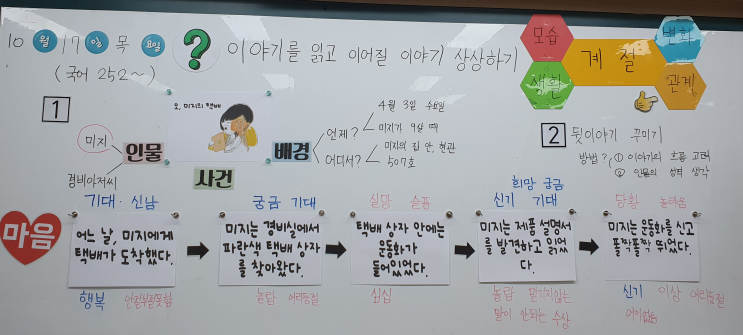 10 월 17 일 목 요일
?
이야기를 읽고 이어질 이야기 상상하기
(국어 252~)
모습
변화
계절
생활
관계
1
오, 미지의 택배
미지
인물
경비아저씨
사건
배경
언제?
4월 3일 수요일
미지가 9살 때
어디서?
미지의 집 안, 현관
507호
2 뒷이야기 꾸미기
방법? ① 이야기의 흐름 고려
② 인물의 성격 생각
마음
기대·신남
어느 날, 미지에게
택배가 도착했다.
행복 안절부절못함
궁금 기대
미지는 경비실에서
파란색 택배 상자
를 찾아왔다.
놀람 어리둥절
실망 슬픔
택배 상자 안에는
운동화가
들어있었다.
심심
희망 궁금
신기 기대
미지는 제품 설명서
를 발견하고 읽었
다.
놀람 믿기지않는
말이 안되는 수상
당황 놀라움
미지는 운동화를 신고
폴짝폴짝 뛰었다.
신기 이상 어리둥절
어이없음